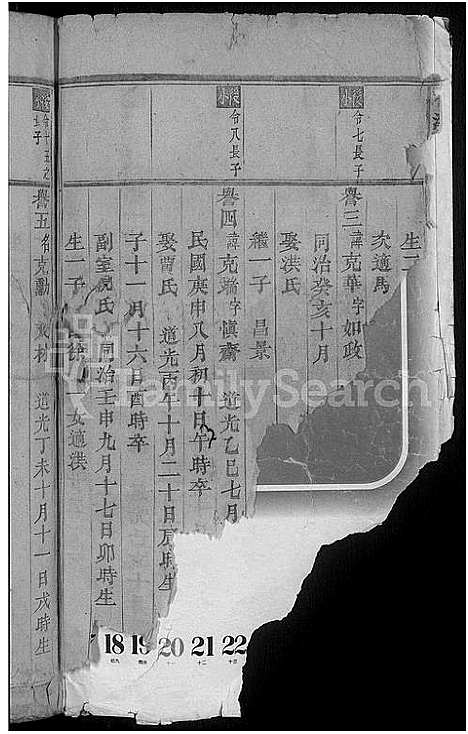 生二
次適馬
令七長子
譽三諱克華字如政
同治癸亥十月
娶洪氏
繼一子 昌景
令八長子
譽四諱克 字慎齋 道光乙巳七月
民國庚申八月初十月午時卒
娶 氏 道光丙午十月二十日 時生
子十一月十六月酉時卒
副室 氏 同治壬申九月十七日卯時生
生一子 徐 女適洪
令十五之 子
譽五名克勳 材 道光丁未十月十一日戌時生
FamilySearch
18 19 20 21 22